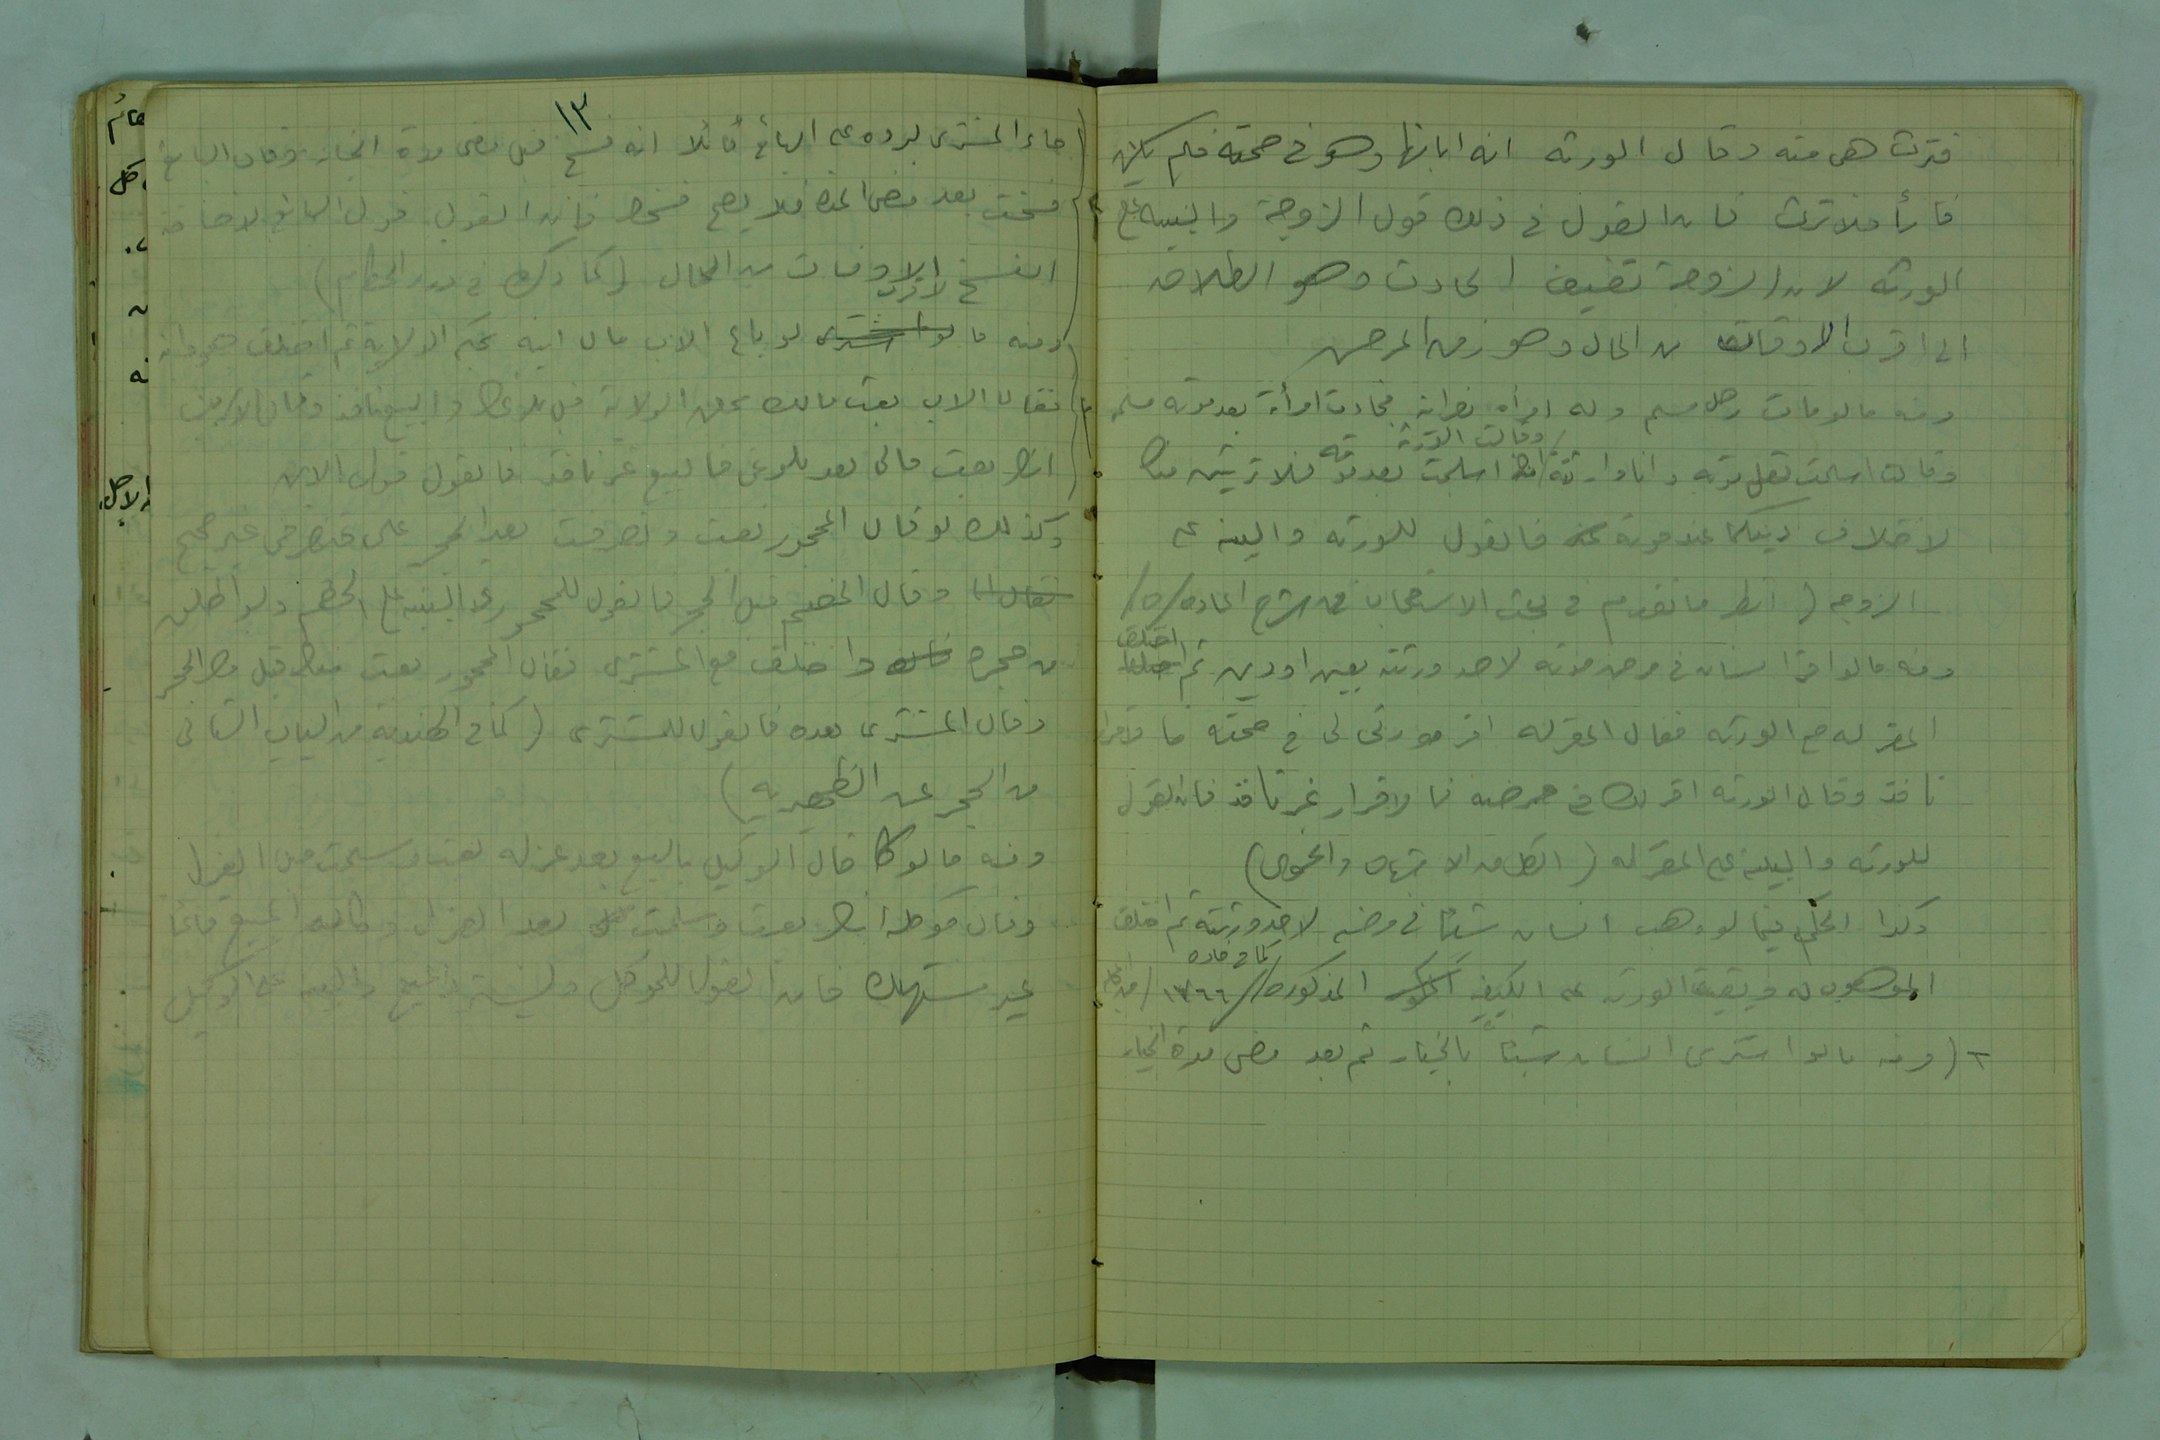 فترث هي منه وقال الورثة انه ابانها وهو في صحته فلم يكن
فارأ فلا ترث فان القول في ذلك قول الزوجة والبينة على
الورثة لان الزوجة تضيف الحادث وهو الطلاق
الى اقرب الاوقات من الحال وهو زمن المرض
ومنه ما لو مات رجل مسلم وله امرأة نصرانية فجاءت امرأة بعد موته مسلمة
وقالت الورثة
وقالت اسلمت قبل موته وانا وارثة انك اسلمت بعد موته فلا ترثين منه
لاختلاف دينكما عند موته فالقول للورثة والبينة على
الزوجة (انظر ما تقدم في بحث الاستصحاب في شرح المادة /٥/
ومنه ما لو اقر انسان في مرض موته لاحد ورثته بعين او دين ثم اختلف
المقر له مع الورثة فقال المقر له اقر مورثي لي في صحته فاقراره
نافذ وقال الورثة اقر لك في مرضه فالاقرار غير نافذ فان القول
للورثة والبينة على المقر له (انظر من الاشباه والحموي)
وكذا الحكم فيما لو وهب انسان شيئا في مرضه لاحد ورثته ثم اختلف
كما في مادة
الموهوب له وبقية الورثة على الكيفية المذكورة /١٧٦٦/
٢ (ومنه ما لو اشترى انسان شيئاً بالخيار ثم بعد مضى مدة الخيار
١٣
جاء المشترى ليرده على البائع قائلا انه فسخ قبل مضى مدة الخيار وقال البائع
فسخت بعد مضى المدة فلا يصح فسخك فان القول قول البائع لاضافته
الفسخ لاقرب الاوقات من الحال (كما ذكره في درر الحكام)
ومنه ما لو باع الاب مال ابنه بحكم الولاية ثم اختلف هو وابنه
فقال الاب بعت مالك بحق الولاية قبل بلوغك والبيع نافذ وقال الابن
انك بعت مالى بعد بلوغى فالبيع غير نافذ فالقول قول الابن
وكذلك لو قال المحجور بعت وتصرفت بعد الحجر على فتصرفى غير صحيح
وقال الخصم قبل الحجر فالقول للمحجور والبينة على الخصم ولو اطلق
من حجره واختلف مع المشترى فقال المحجور بعت منك قبل فك الحجر
وقال المشترى بعده فالقول للمشترى (كما في الهندية من الباب الثانى
من الحجر عن الظهيرية)
ومنه ما لو قال الوكيل بالبيع بعد عزله بعت وسلمت قبل العزل
وقال موكله انك بعت وسلمت بعد العزل وكان المبيع قائما
غير مستهلك فان القول للموكل والبينة على الوكيل